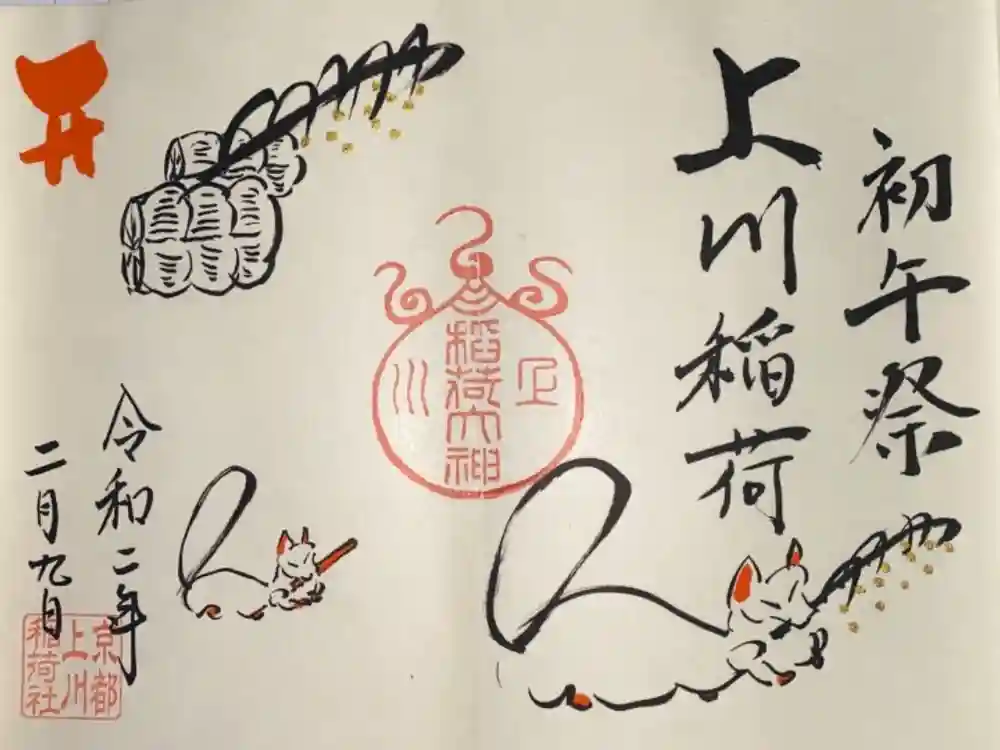 初午祭
上川稲荷
上
稲荷大神
川
令和二年
二月九日
京都
上川
稲荷社